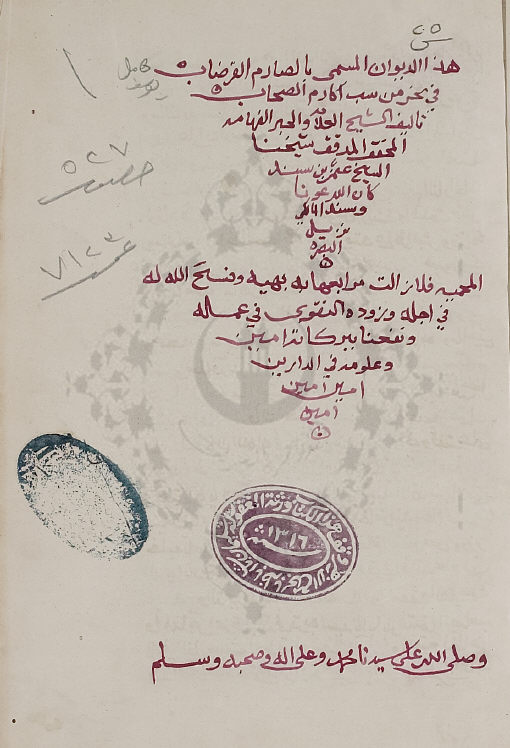 ٢٥
هذا الديوان المسمى بالصارم القرضاب
كامل
في نحر من سب اكارم الصحاب
تاليف الشيخ العلامة والحبر الفهامه
المحقق المدقق شيخنا
الشيخ عثمن بن سند
كان الله عونا
وسنده المالكي
نزيل
البصره
المحميه فلا زالت مرابعها به بهيه وفسح الله له
في اجله وزوده التقوى في عمله
ونفعنا ببركاته امين
وعلومه في الدارين
امين امين
امين
٥٢٧
خصوصي
٧١٢٣
عمومي
١٣١٦
سنة
وصلى الله على سيدنا محمد وعلى اله وصحبه وسلم